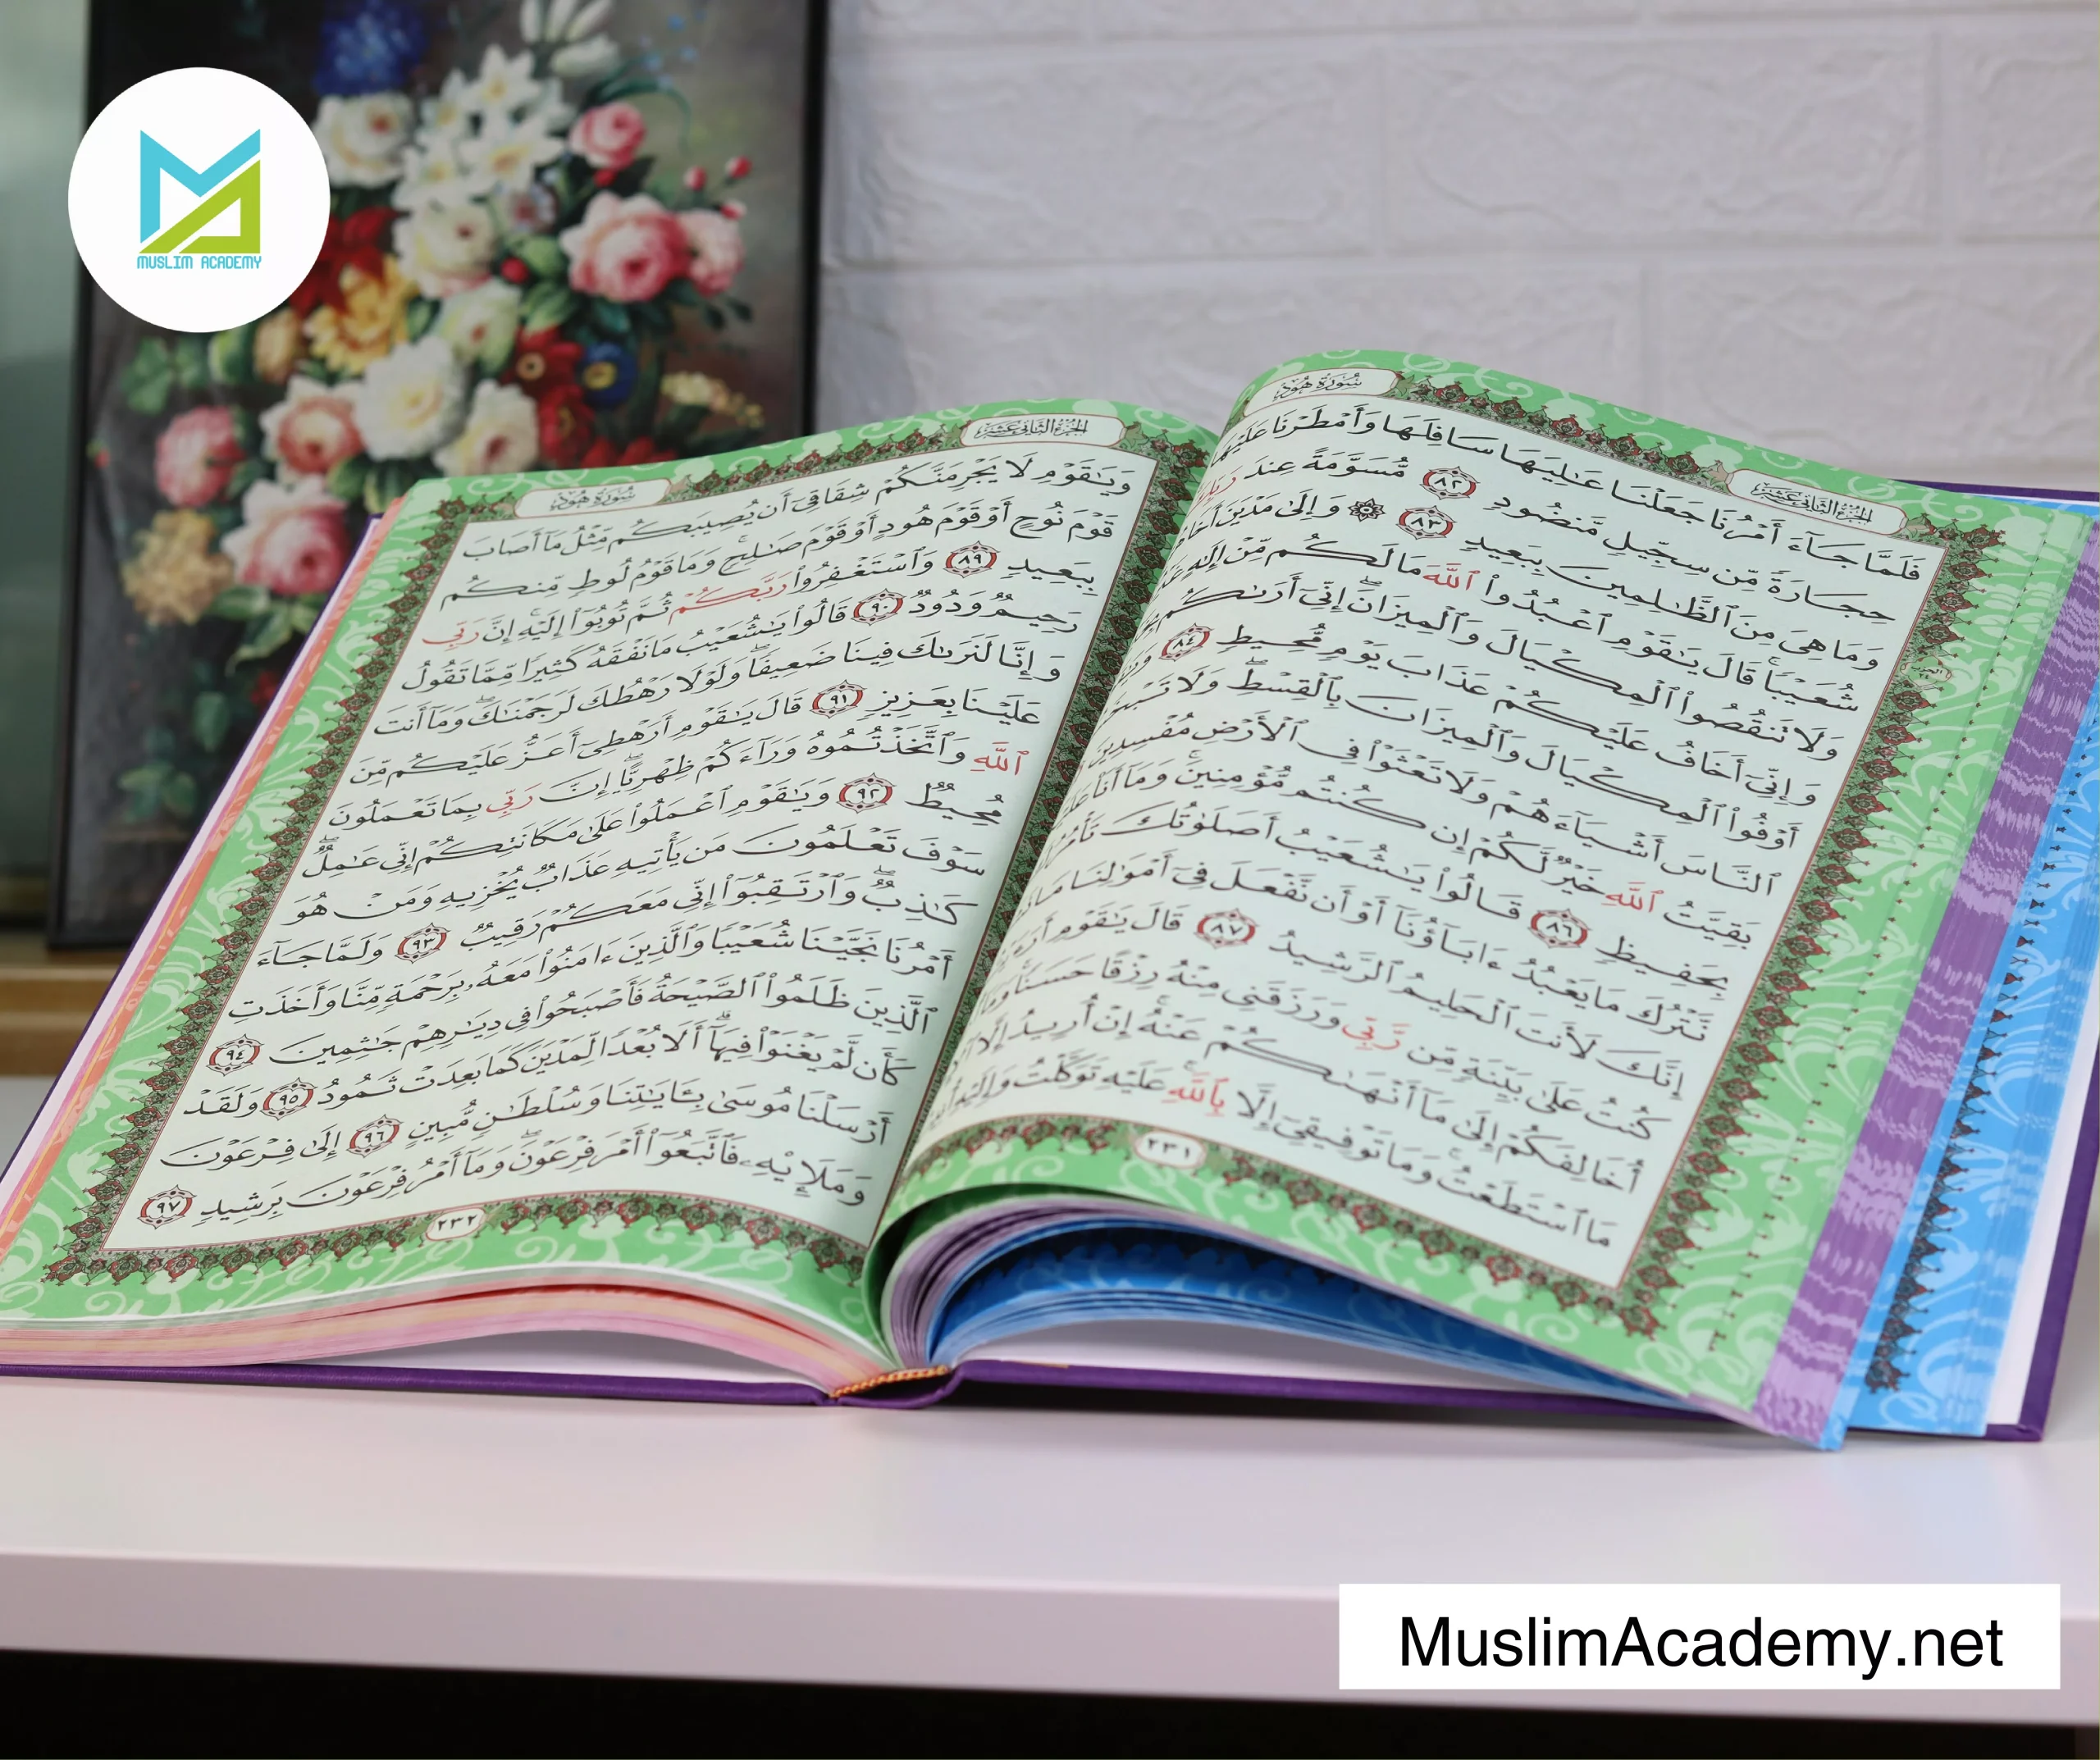 MUSLIM ACADEMY
سُورَةُ هُودٍ
الجُزْءُ الثَّانِي عَشَرَ
فَلَمَّا جَآءَ أَمْرُنَا جَعَلْنَا عَٰلِيَهَا سَافِلَهَا وَأَمْطَرْنَا عَلَيْهَا
حِجَارَةً مِّن سِجِّيلٍ مَّنضُودٍ ٨٢ مُّسَوَّمَةً عِندَ
وَمَا هِىَ مِنَ ٱلظَّٰلِمِينَ بِبَعِيدٍ ٨٣ ۞ وَإِلَىٰ مَدْيَنَ
شُعَيْبًا ۚ قَالَ يَٰقَوْمِ ٱعْبُدُوا۟ ٱللَّهَ مَا لَكُم مِّنْ إِلَٰهٍ
وَلَا تَنقُصُوا۟ ٱلْمِكْيَالَ وَٱلْمِيزَانَ ۚ إِنِّىٓ أَرَىٰكُم
وَإِنِّىٓ أَخَافُ عَلَيْكُمْ عَذَابَ يَوْمٍ مُّحِيطٍ ٨٤
أَوْفُوا۟ ٱلْمِكْيَالَ وَٱلْمِيزَانَ بِٱلْقِسْطِ ۖ وَلَا
ٱلنَّاسَ أَشْيَآءَهُمْ وَلَا تَعْثَوْا۟ فِى ٱلْأَرْضِ مُفْسِدِينَ
بَقِيَّتُ ٱللَّهِ خَيْرٌ لَّكُمْ إِن كُنتُم مُّؤْمِنِينَ ۚ وَمَآ أَنَا۠
بِحَفِيظٍ ٨٦ قَالُوا۟ يَٰشُعَيْبُ أَصَلَوٰتُكَ
نَّتْرُكَ مَا يَعْبُدُ ءَابَآؤُنَآ أَوْ أَن نَّفْعَلَ فِىٓ أَمْوَٰلِنَا
إِنَّكَ لَأَنتَ ٱلْحَلِيمُ ٱلرَّشِيدُ ٨٧ قَالَ يَٰقَوْمِ
كُنتُ عَلَىٰ بَيِّنَةٍ مِّن رَّبِّى وَرَزَقَنِى مِنْهُ رِزْقًا حَسَنًا ۚ
أُخَالِفَكُمْ إِلَىٰ مَآ أَنْهَىٰكُمْ عَنْهُ ۚ إِنْ أُرِيدُ إِلَّا
مَا ٱسْتَطَعْتُ ۚ وَمَا تَوْفِيقِىٓ إِلَّا بِٱللَّهِ ۚ عَلَيْهِ تَوَكَّلْتُ وَإِلَيْهِ
٢٣١
الجُزْءُ الثَّانِي عَشَرَ
سُورَةُ هُودٍ
وَيَٰقَوْمِ لَا يَجْرِمَنَّكُمْ شِقَاقِىٓ أَن يُصِيبَكُم مِّثْلُ مَآ أَصَابَ
قَوْمَ نُوحٍ أَوْ قَوْمَ هُودٍ أَوْ قَوْمَ صَٰلِحٍ ۚ وَمَا قَوْمُ لُوطٍ مِّنكُم
بِبَعِيدٍ ٨٩ وَٱسْتَغْفِرُوا۟ رَبَّكُمْ ثُمَّ تُوبُوٓا۟ إِلَيْهِ ۚ إِنَّ رَبِّى
رَحِيمٌ وَدُودٌ ٩٠ قَالُوا۟ يَٰشُعَيْبُ مَا نَفْقَهُ كَثِيرًا مِّمَّا تَقُولُ
وَإِنَّا لَنَرَىٰكَ فِينَا ضَعِيفًا ۖ وَلَوْلَا رَهْطُكَ لَرَجَمْنَٰكَ ۖ وَمَآ أَنتَ
عَلَيْنَا بِعَزِيزٍ ٩١ قَالَ يَٰقَوْمِ أَرَهْطِىٓ أَعَزُّ عَلَيْكُم مِّنَ
ٱللَّهِ وَٱتَّخَذْتُمُوهُ وَرَآءَكُمْ ظِهْرِيًّا ۖ إِنَّ رَبِّى بِمَا تَعْمَلُونَ
مُحِيطٌ ٩٢ وَيَٰقَوْمِ ٱعْمَلُوا۟ عَلَىٰ مَكَانَتِكُمْ إِنِّى عَٰمِلٌ ۖ
سَوْفَ تَعْلَمُونَ مَن يَأْتِيهِ عَذَابٌ يُخْزِيهِ وَمَنْ هُوَ
كَٰذِبٌ ۖ وَٱرْتَقِبُوٓا۟ إِنِّى مَعَكُمْ رَقِيبٌ ٩٣ وَلَمَّا جَآءَ
أَمْرُنَا نَجَّيْنَا شُعَيْبًا وَٱلَّذِينَ ءَامَنُوا۟ مَعَهُۥ بِرَحْمَةٍ مِّنَّا وَأَخَذَتِ
ٱلَّذِينَ ظَلَمُوا۟ ٱلصَّيْحَةُ فَأَصْبَحُوا۟ فِى دِيَٰرِهِمْ جَٰثِمِينَ ٩٤
كَأَن لَّمْ يَغْنَوْا۟ فِيهَآ ۗ أَلَا بُعْدًا لِّمَدْيَنَ كَمَا بَعِدَتْ ثَمُودُ ٩٥ وَلَقَدْ
أَرْسَلْنَا مُوسَىٰ بِـَٔايَٰتِنَا وَسُلْطَٰنٍ مُّبِينٍ ٩٦ إِلَىٰ فِرْعَوْنَ
وَمَلَإِي۟هِۦ فَٱتَّبَعُوٓا۟ أَمْرَ فِرْعَوْنَ ۖ وَمَآ أَمْرُ فِرْعَوْنَ بِرَشِيدٍ ٩٧
٢٣٢
MuslimAcademy.net